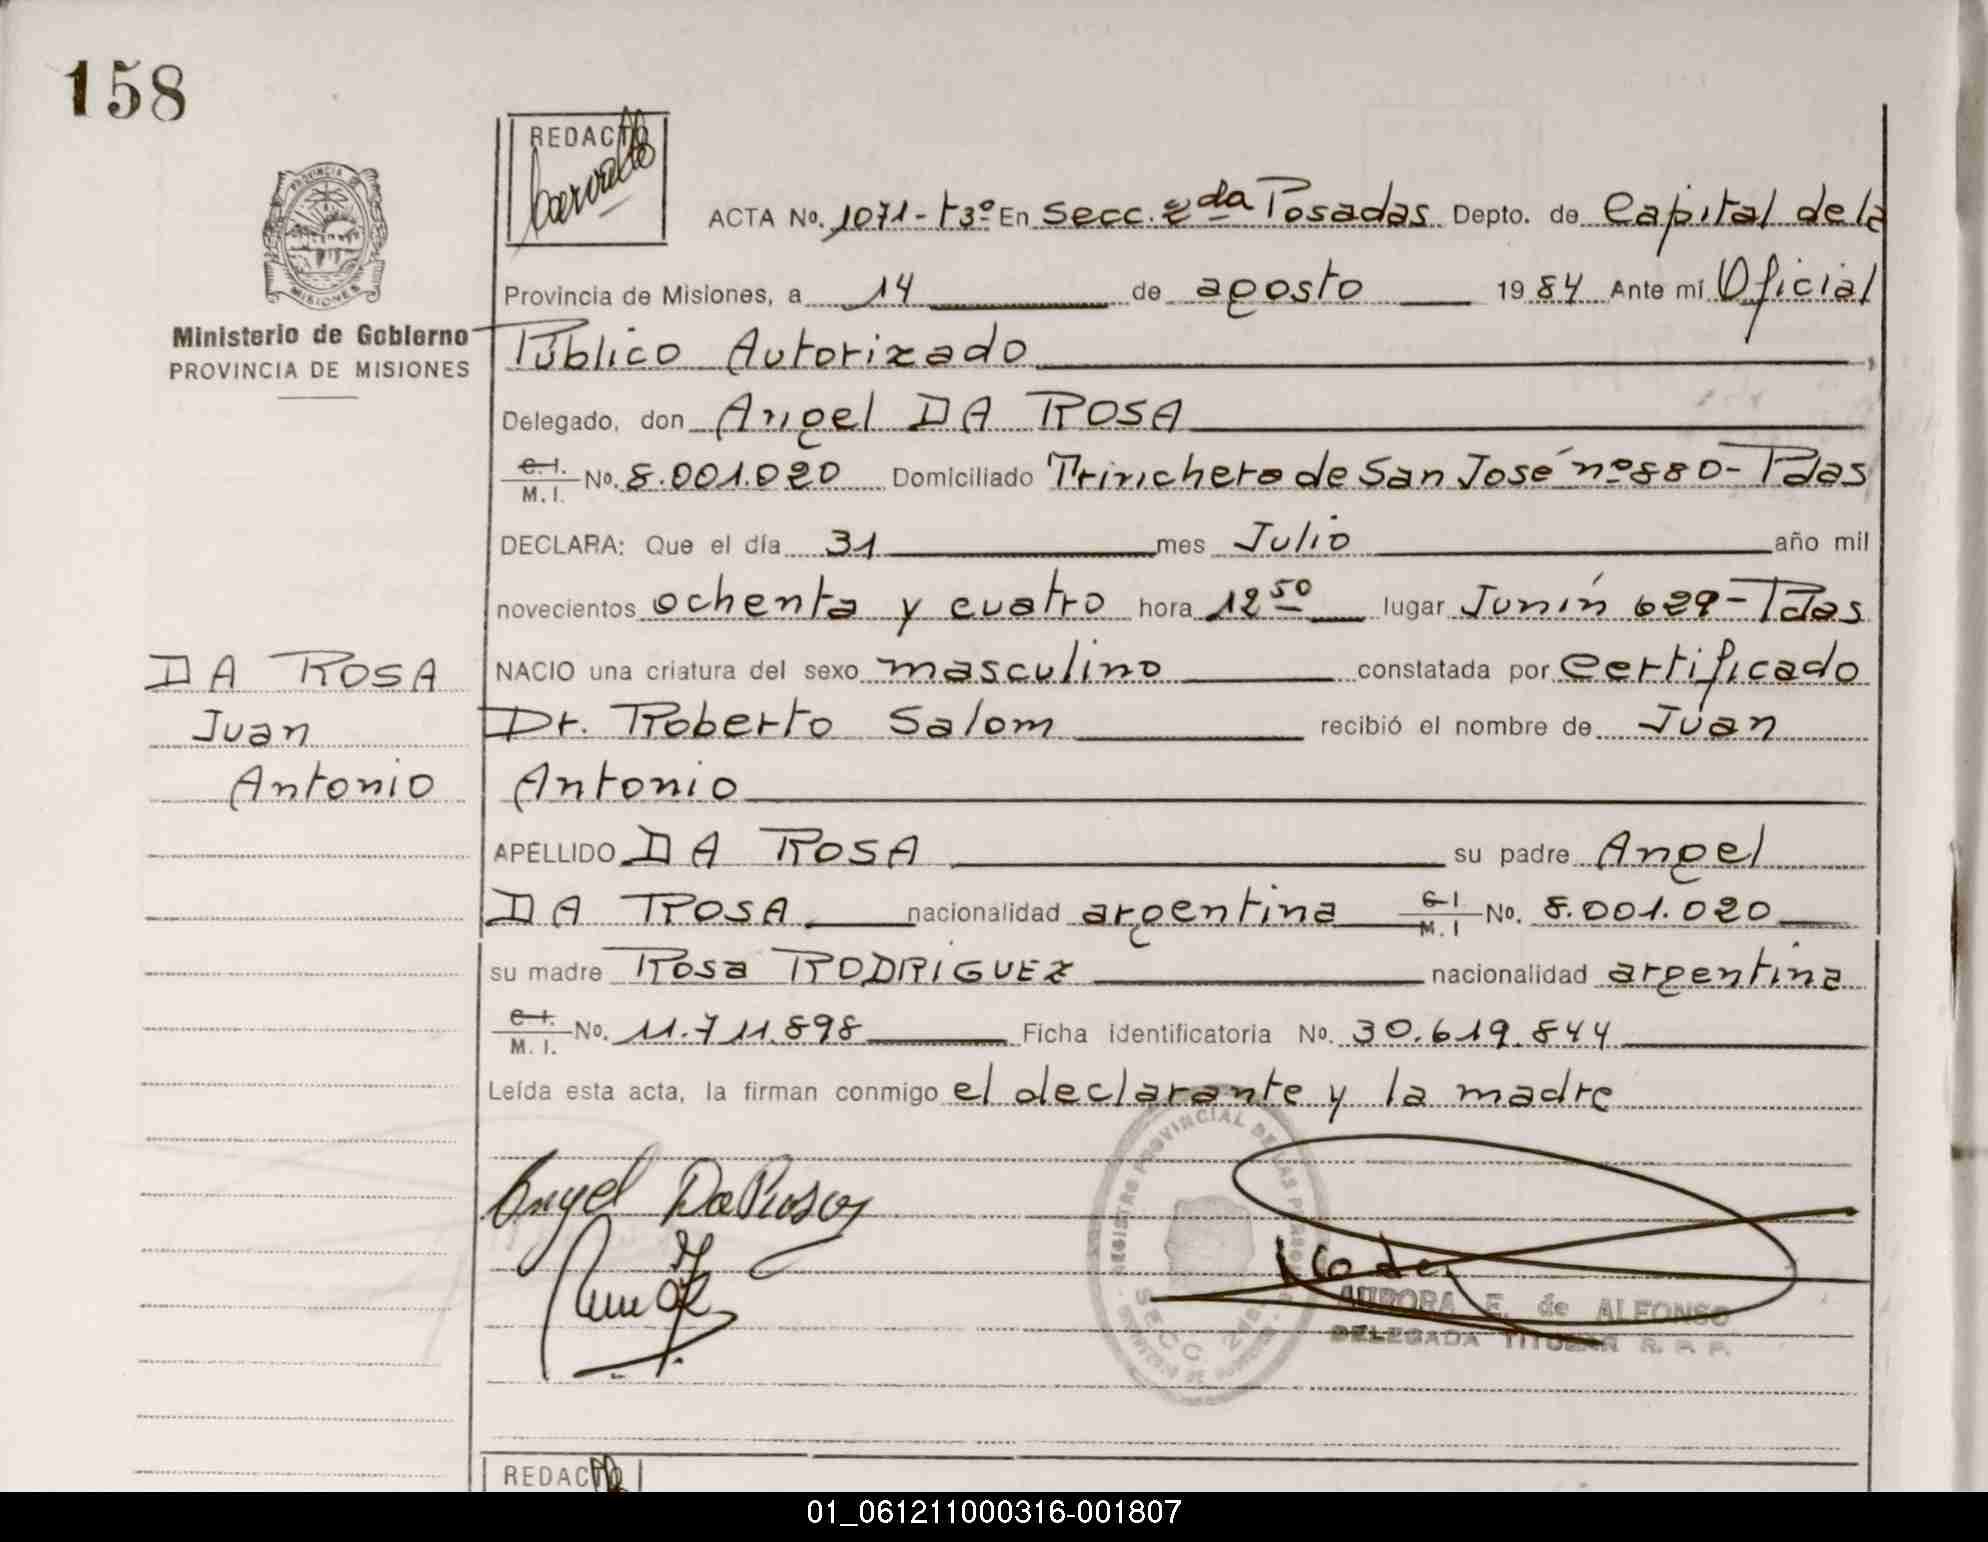 158
REDACTO
ACTA No. 1071-t3º En Secc. 2da Posadas Depto. de Capital de la
Provincia de Misiones, a 14 de agosto 1984 Ante mí Oficial
Ministerio de Gobierno
PROVINCIA DE MISIONES
Público Autorizado
Delegado, don Angel DA ROSA
C. I. M. I. No. 8.001.020 Domiciliado Trinchera de San José nº 880-Pdas
DECLARA: Que el día 31 mes Julio año mil
novecientos ochenta y cuatro hora 12 50 lugar Junín 629-Pdas
DA ROSA
Juan
Antonio
NACIO una criatura del sexo masculino constatada por Certificado
Dr. Roberto Salom recibió el nombre de Juan
Antonio
APELLIDO DA ROSA su padre Angel
DA ROSA nacionalidad argentina C I M. I No. 8.001.020
su madre Rosa RODRIGUEZ nacionalidad argentina
C. I. M. I. No. 11.711.898 Ficha identificatoria No. 30.619.844
Leída esta acta, la firman conmigo el declarante y la madre
Angel Da Rosa
REGISTRO PROVINCIAL DE LAS PERSONAS
SECC 2da
AURORA E. de ALFONSO
DELEGADA TITULAR R. P. P.
REDACTO
01_061211000316-001807